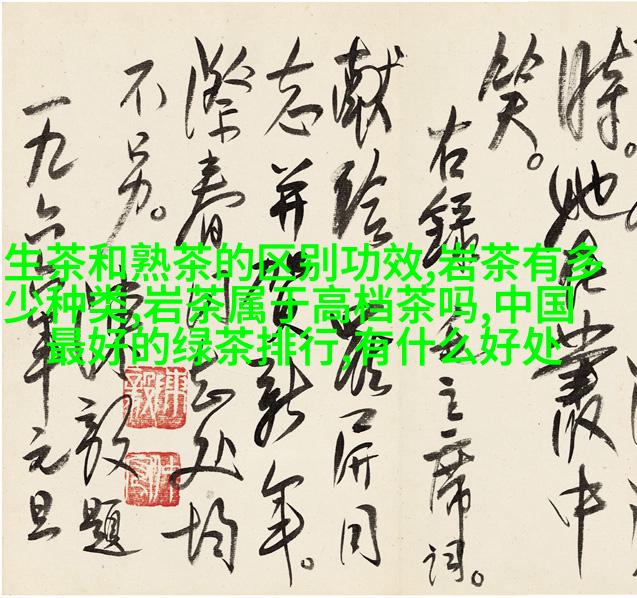 生茶和熟茶的区别功效,岩茶有多
少种类,岩茶属于高档茶吗,中国
最好的绿茶排行,有什么好处
時。她在叢中
笑。
右録毛主席词。
献给屏同
志并贺新年。
際春同志处均
不另。
陈毅題
一九六六年元旦
陳毅